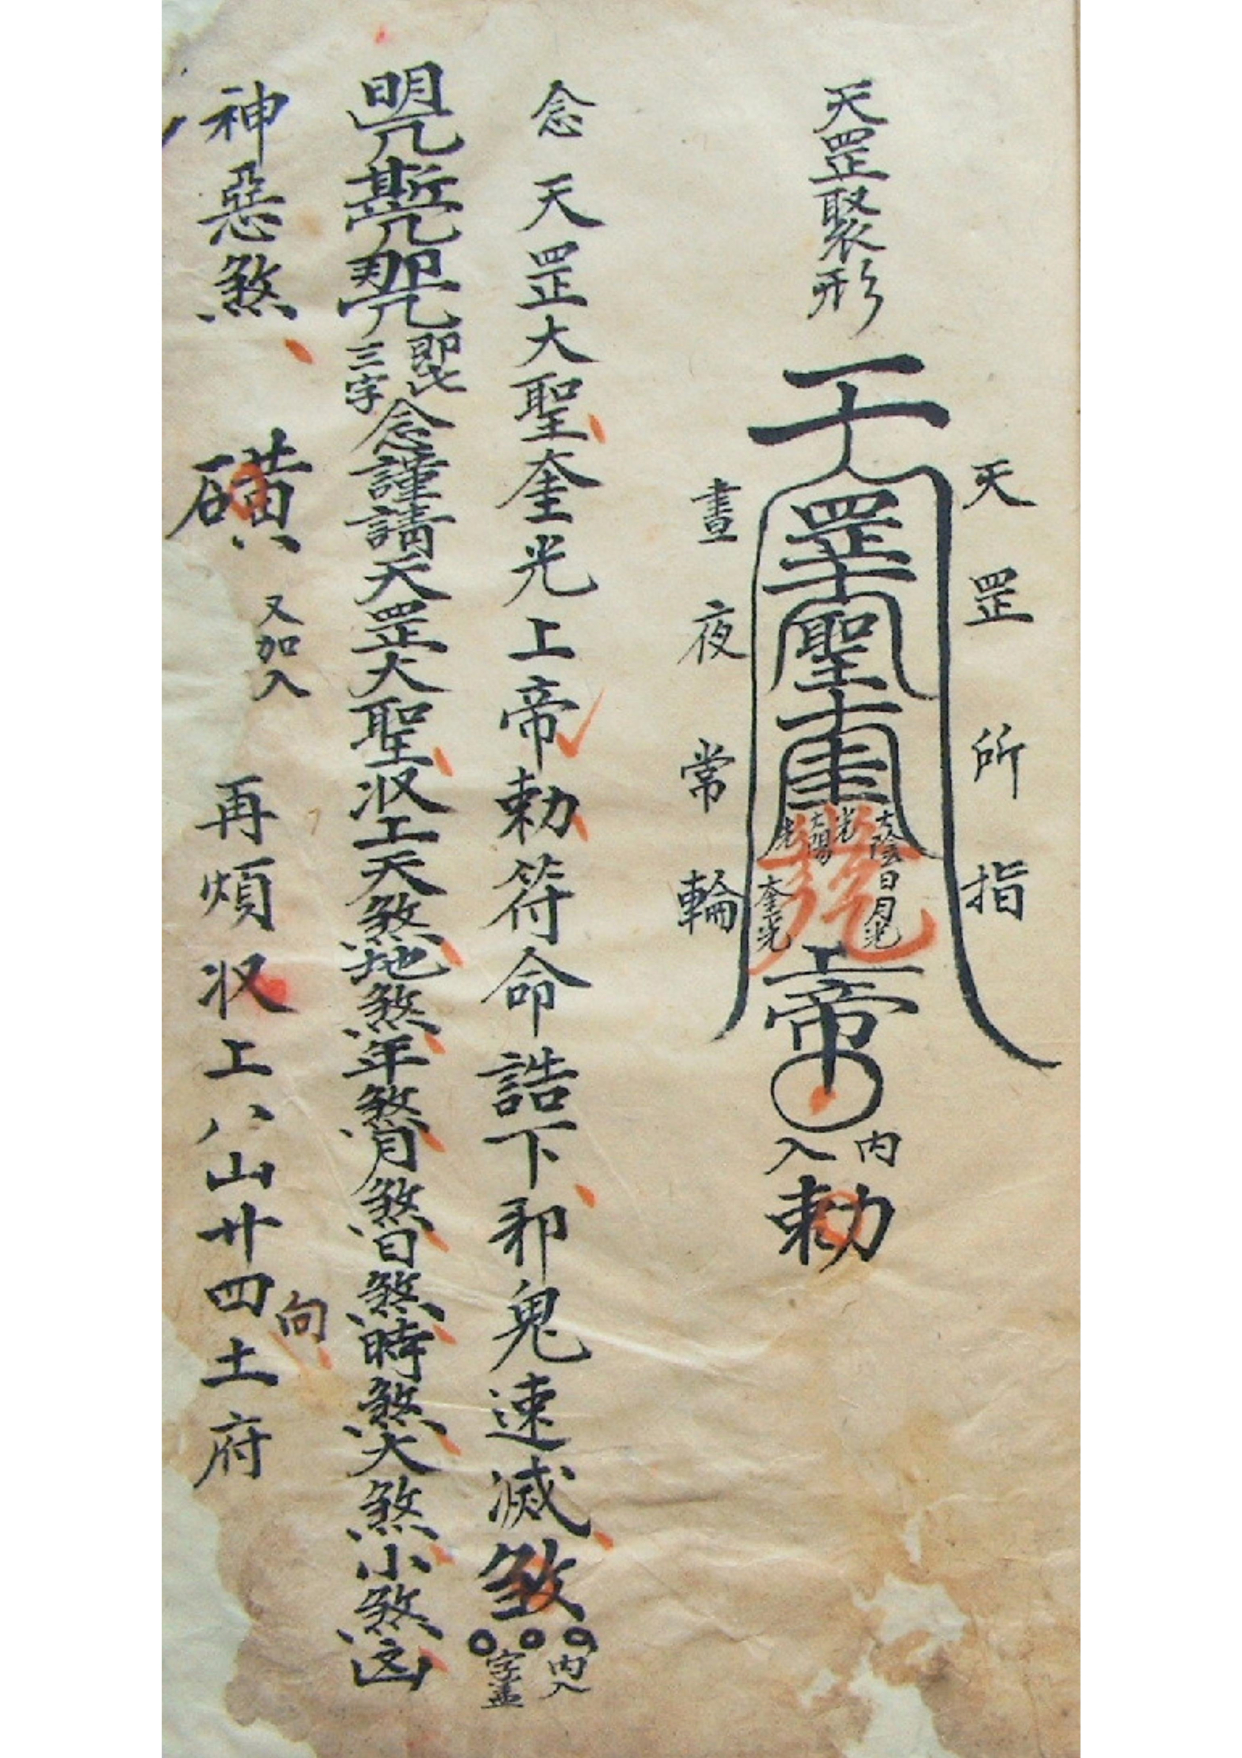 天罡聚形
天罡所指
晝夜常輪
天罡聖奎
太陰日月光
太陽光
奎光
上帝
內入
勅
念天罡大聖奎光上帝勅符命誥下邪鬼速滅煞
內入
字盖
即此三字
念謹請天罡大聖收上天煞地煞年煞月煞日煞時煞大煞小煞凶
神惡煞
磺
又加入
再煩收上八山廿四向土府